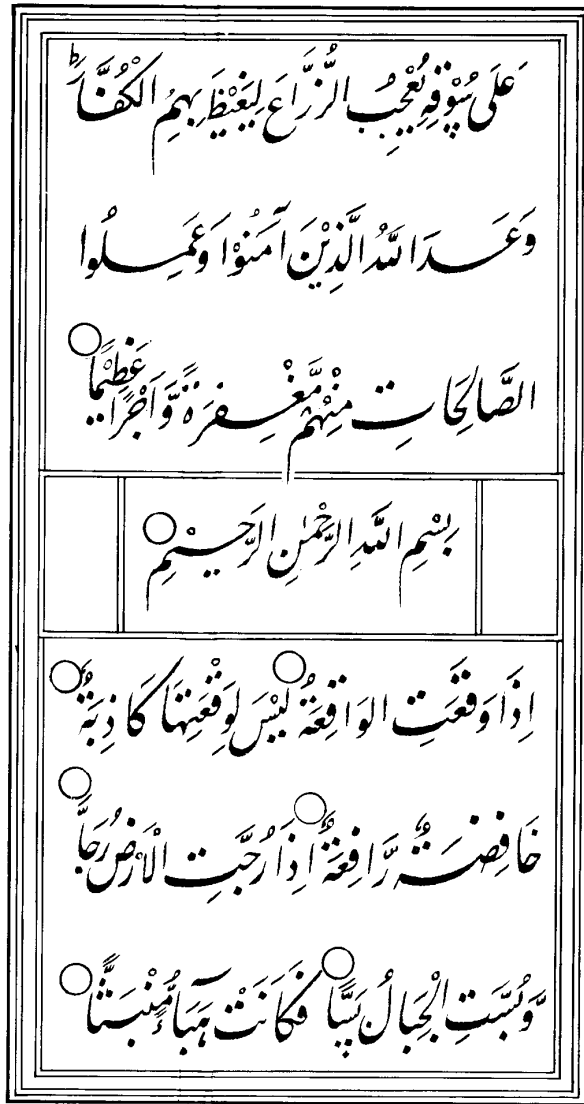 عَلَى سُوْقِهٖ يُعْجِبُ الزُّرَّاعَ لِيَغِيْظَ بِهِمُ الْكُفَّارَ ؕ
وَعَدَ اللّٰهُ الَّذِيْنَ آمَنُوْا وَعَمِلُوا
الصَّالِحَاتِ مِنْهُمْ مَّغْفِرَةً وَّاَجْرًا عَظِيْمًا ○
بِسْمِ اللّٰهِ الرَّحْمٰنِ الرَّحِيْمِ ○
اِذَا وَقَعَتِ الوَاقِعَةُ ○ لَيْسَ لِوَقْعَتِهَا كَاذِبَةٌ ○
خَافِضَةٌ رَّافِعَةٌ ○ اِذَا رُجَّتِ الْاَرْضُ رَجًّا ○
وَّبُسَّتِ الْجِبَالُ بَسًّا ○ فَكَانَتْ هَبَآءً مُّنْبَثًّا ○